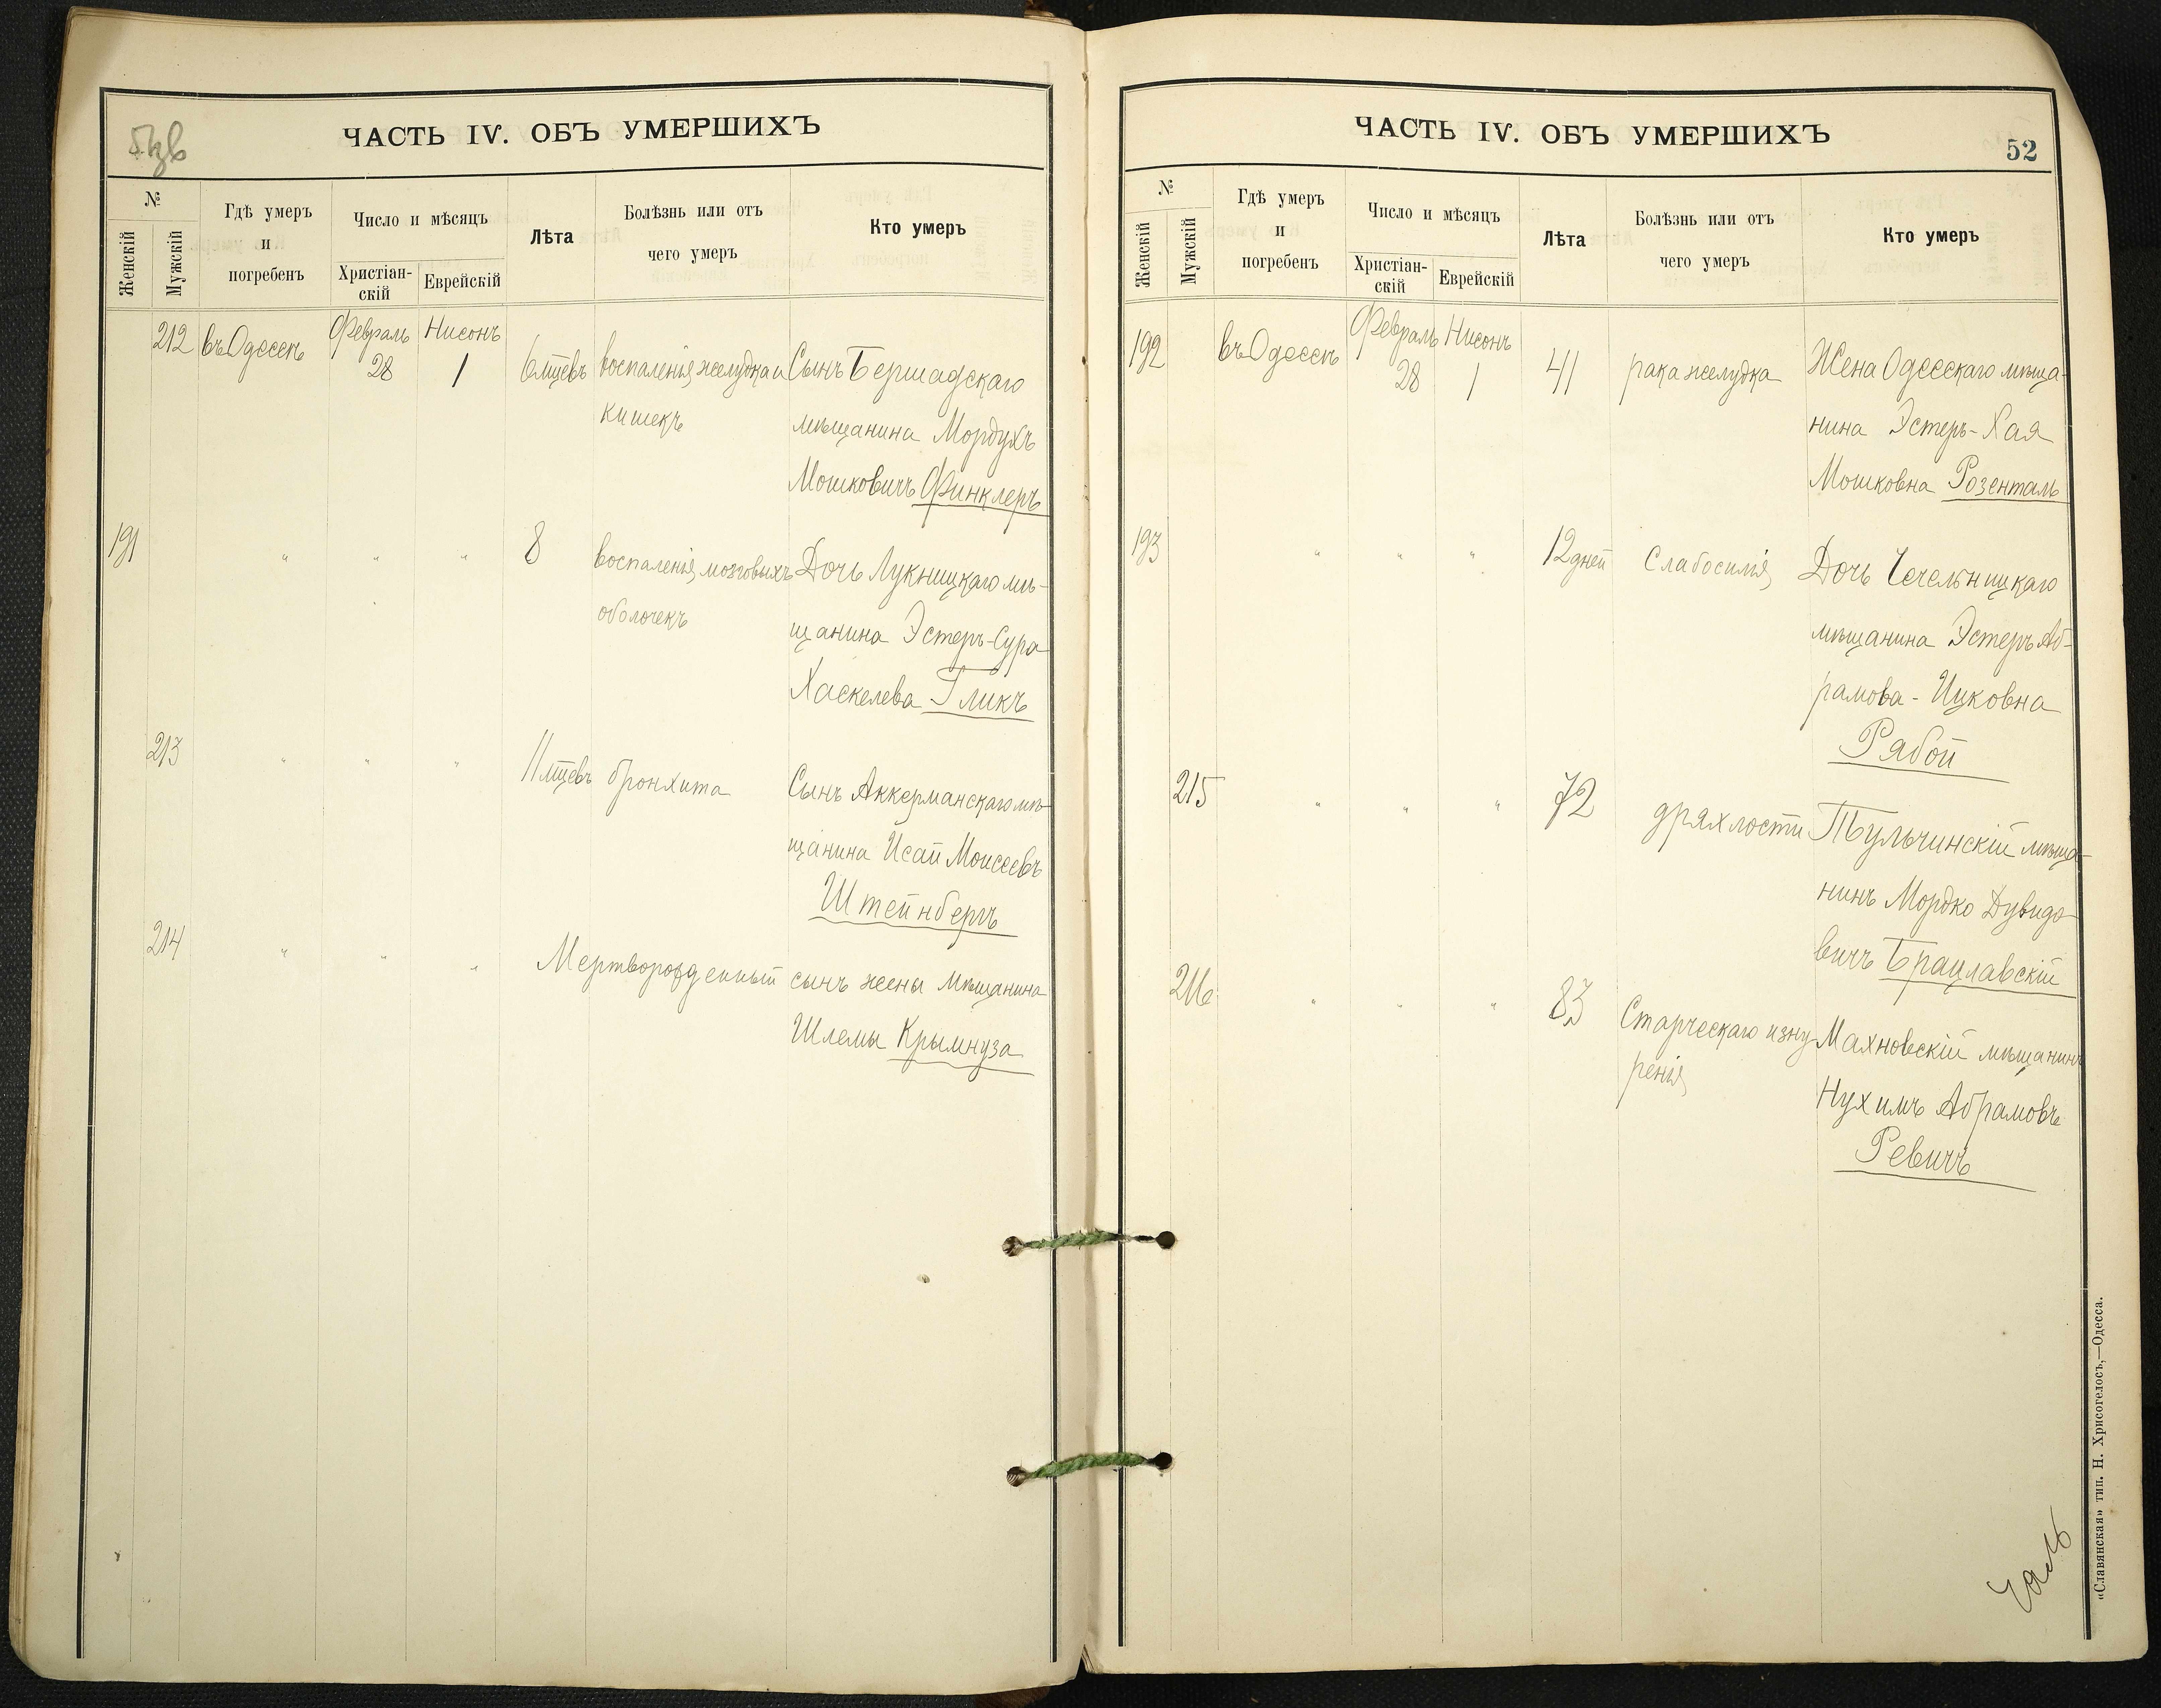 ЧАСТЬ IV. ОБЪ УМЕРШИХЪ
№
Женскій
Мужскій
Гдѣ умеръ
и
погребенъ
Число и мѣсяцъ
Христіан-
скій
Еврейскій
Лѣта
Болѣзнь или отъ
чего умеръ
Кто умеръ
212 въ Одессѣ Февраль 28 Нисонъ 1 6 мцевъ воспаленія желудка и Сынъ Бершадскаго
кишекъ мѣщанина Мордухъ
Мошковичъ Финклеръ
191 " " " 8 воспаленія мозговыхъ Дочь Лукницкаго мѣ-
оболочекъ щанина Эстеръ-Сура
Хаскелева Гликъ
213 " " " 11 мцевъ бронхита Сынъ Аккерманскаго мѣ-
щанина Исай Моисеевъ
Штейнбергъ
214 " " " Мертворожденный сынъ жены мѣщанина
Шлемы Крымнуза
ЧАСТЬ IV. ОБЪ УМЕРШИХЪ
52
№
Женскій
Мужскій
Гдѣ умеръ
и
погребенъ
Число и мѣсяцъ
Христіан-
скій
Еврейскій
Лѣта
Болѣзнь или отъ
чего умеръ
Кто умеръ
192 въ Одессѣ Февраль 28 Нисонъ 1 41 рака желудка Жена Одесскаго мѣща-
нина Эстеръ-Хая
Мошковна Розенталь
193 " " " 12 дней Слабосилія Дочь Чечельницкаго
мѣщанина Эстеръ Аб-
рамова-Ицковна
Рябой
215 " " " 72 дряхлости Тульчинскій мѣща-
нинъ Мордко Дувидо-
вичъ Брацлавскій
216 " " " 83 Старческаго изну- Махновскій мѣщанинъ
ренія Нухимъ Абрамовъ
Ревичъ
«Славянская» тип. Н. Хрисогелосъ,—Одесса.